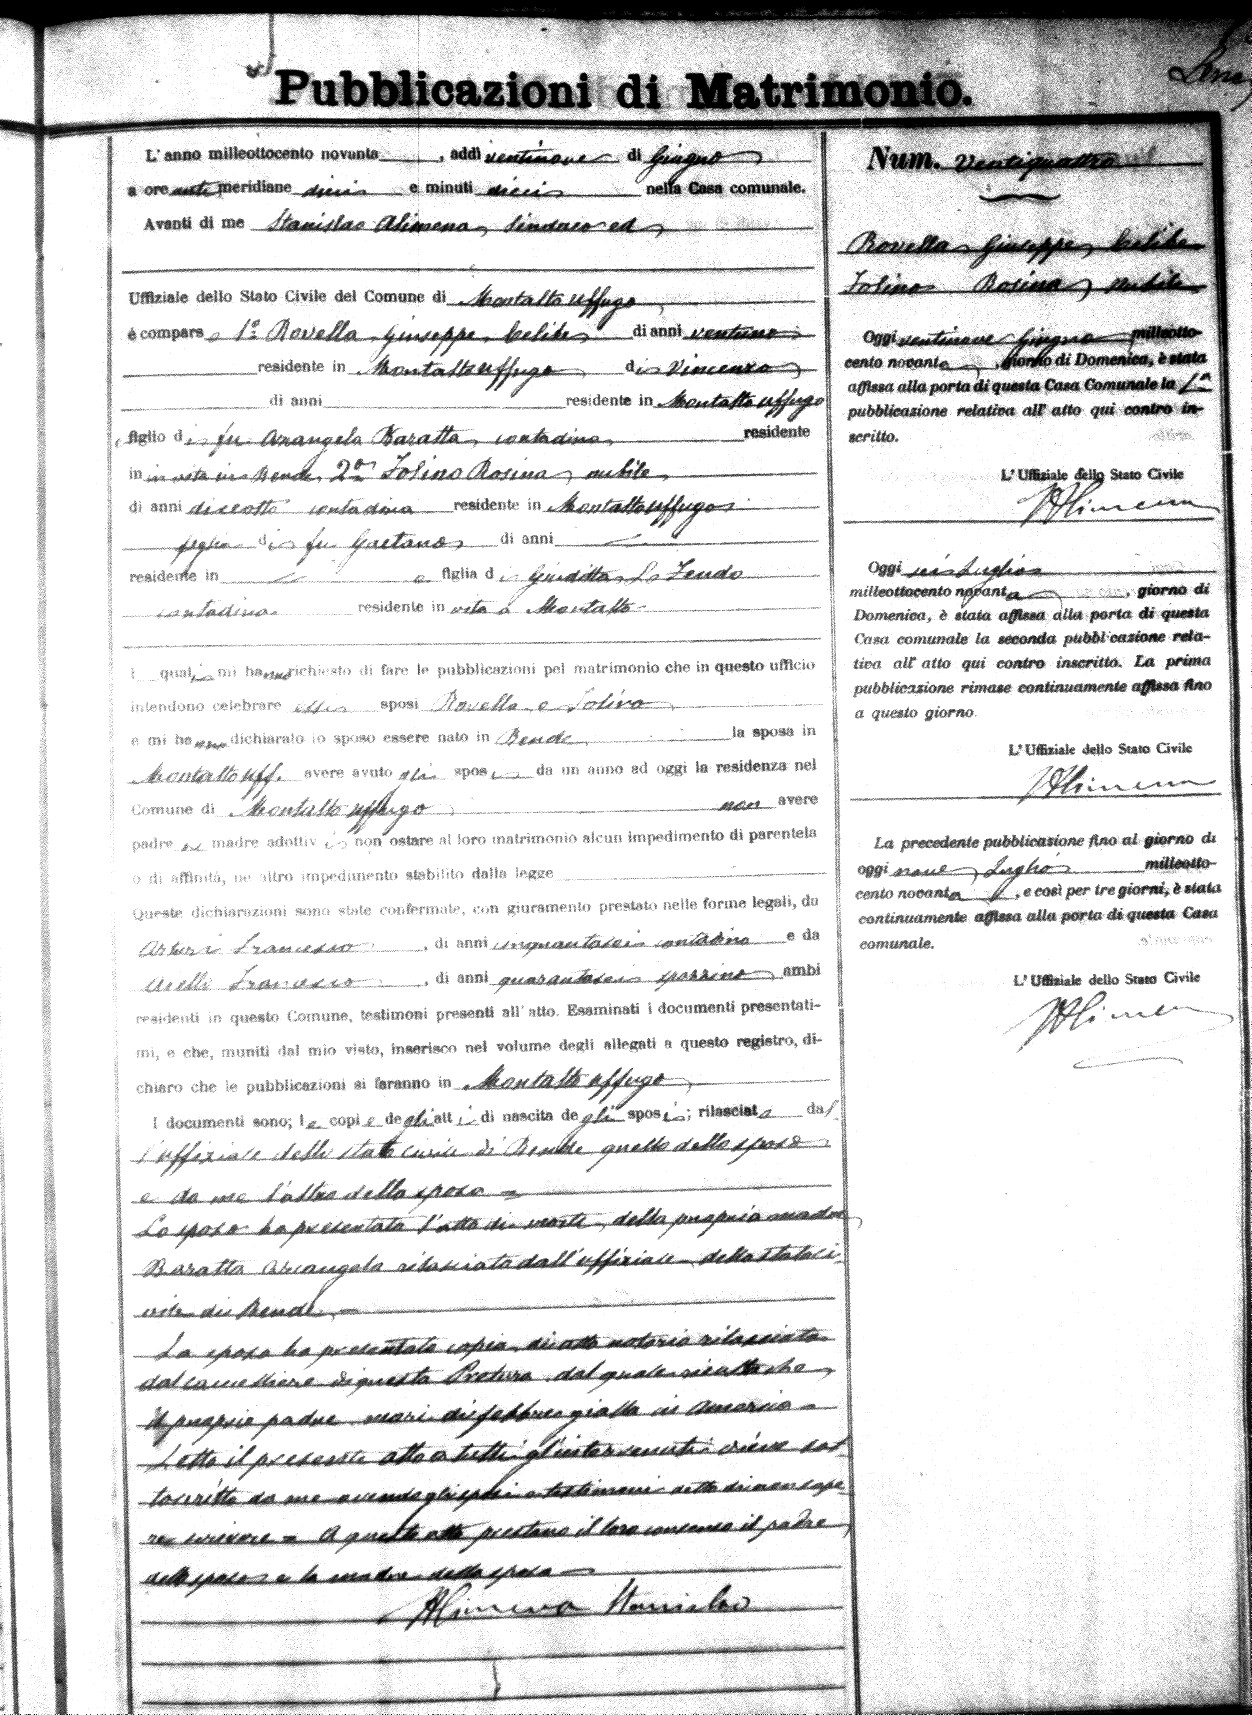 Pubblicazioni di Matrimonio.
L'anno milleottocento novanta, addì ventinove di Giugno
a ore anti meridiane dieci e minuti dieci nella Casa comunale.
Avanti di me Stanislao Alimena, Sindaco ed
Uffiziale dello Stato Civile del Comune di Montalto Uffugo
é compars 1º Rovella Giuseppe celibe di anni ventuno
residente in Montalto Uffugo di Vincenzo
di anni residente in Montalto Uffugo
figlio di fu Arcangela Baratta, contadino, residente
in in vita in Rende, 2ª Rosina, nubile,
di anni diciotto contadina residente in Montalto Uffugo
figlia di fu Gaetano di anni
residente in e figlia di Giuditta Lo Feudo
contadina residente in vita a Montalto
I quali mi hanno richiesto di fare le pubblicazioni pel matrimonio che in questo ufficio
intendono celebrare essi sposi Rovella e
e mi hanno dichiarato lo sposo essere nato in Rende la sposa in
Montalto Uff. avere avuto gli sposi da un anno ad oggi la residenza nel
Comune di Montalto Uffugo non avere
padre ne madre adottivi non ostare al loro matrimonio alcun impedimento di parentela
o di affinità, ne altro impedimento stabilito dalla legge
Queste dichiarazioni sono state confermate, con giuramento prestato nelle forme legali, da
Arturi Francesco, di anni cinquantasei contadino e da
Aielli Francesco, di anni quarantasei spazzino ambi
residenti in questo Comune, testimoni presenti all'atto. Esaminati i documenti presentati-
mi, e che, muniti dal mio visto, inserisco nel volume degli allegati a questo registro, di-
chiaro che le pubblicazioni si faranno in Montalto Uffugo
I documenti sono; le copie degli atti di nascita degli sposi; rilasciate dal
l'uffiziale dello stato civile di Rende quello dello sposo
e da me l'altro della sposa =
Lo sposo ha presentato l'atto di morte della propria madre
Baratta Arcangela rilasciato dall'uffiziale dello stato ci-
vile di Rende =
La sposa ha presentato copia di atto notorio rilasciata
dal cancelliere di questa Pretura dal quale risulta che
il proprio padre morì di febbre gialla in America =
Letto il presente atto a tutti gl'intervenuti viene sot
toscritto da me avendo gli sposi e testimoni detto di non sape-
re scrivere = A questo atto prestano il loro consenso il padre
dello sposo e la madre della sposa =
Alimena Stanislao
Num. Ventiquattro
Rovella Giuseppe, celibe
Rosina, nubile
Oggi ventinove Giugno milleotto-
cento novanta, giorno di Domenica, è stata
affissa alla porta di questa Casa Comunale la 1ª
pubblicazione relativa all'atto qui contro in-
scritto.
L'Uffiziale dello Stato Civile
Alimena
Oggi sei Luglio
milleottocento novanta, giorno di
Domenica, è stata affissa alla porta di questa
Casa comunale la seconda pubblicazione rela-
tiva all'atto qui contro inscritto. La prima
pubblicazione rimase continuamente affissa fino
a questo giorno.
L'Uffiziale dello Stato Civile
Alimena
La precedente pubblicazione fino al giorno di
oggi nove Luglio milleotto-
cento novanta, e così per tre giorni, è stata
continuamente affissa alla porta di questa Casa
comunale.
L'Uffiziale dello Stato Civile
Alimena